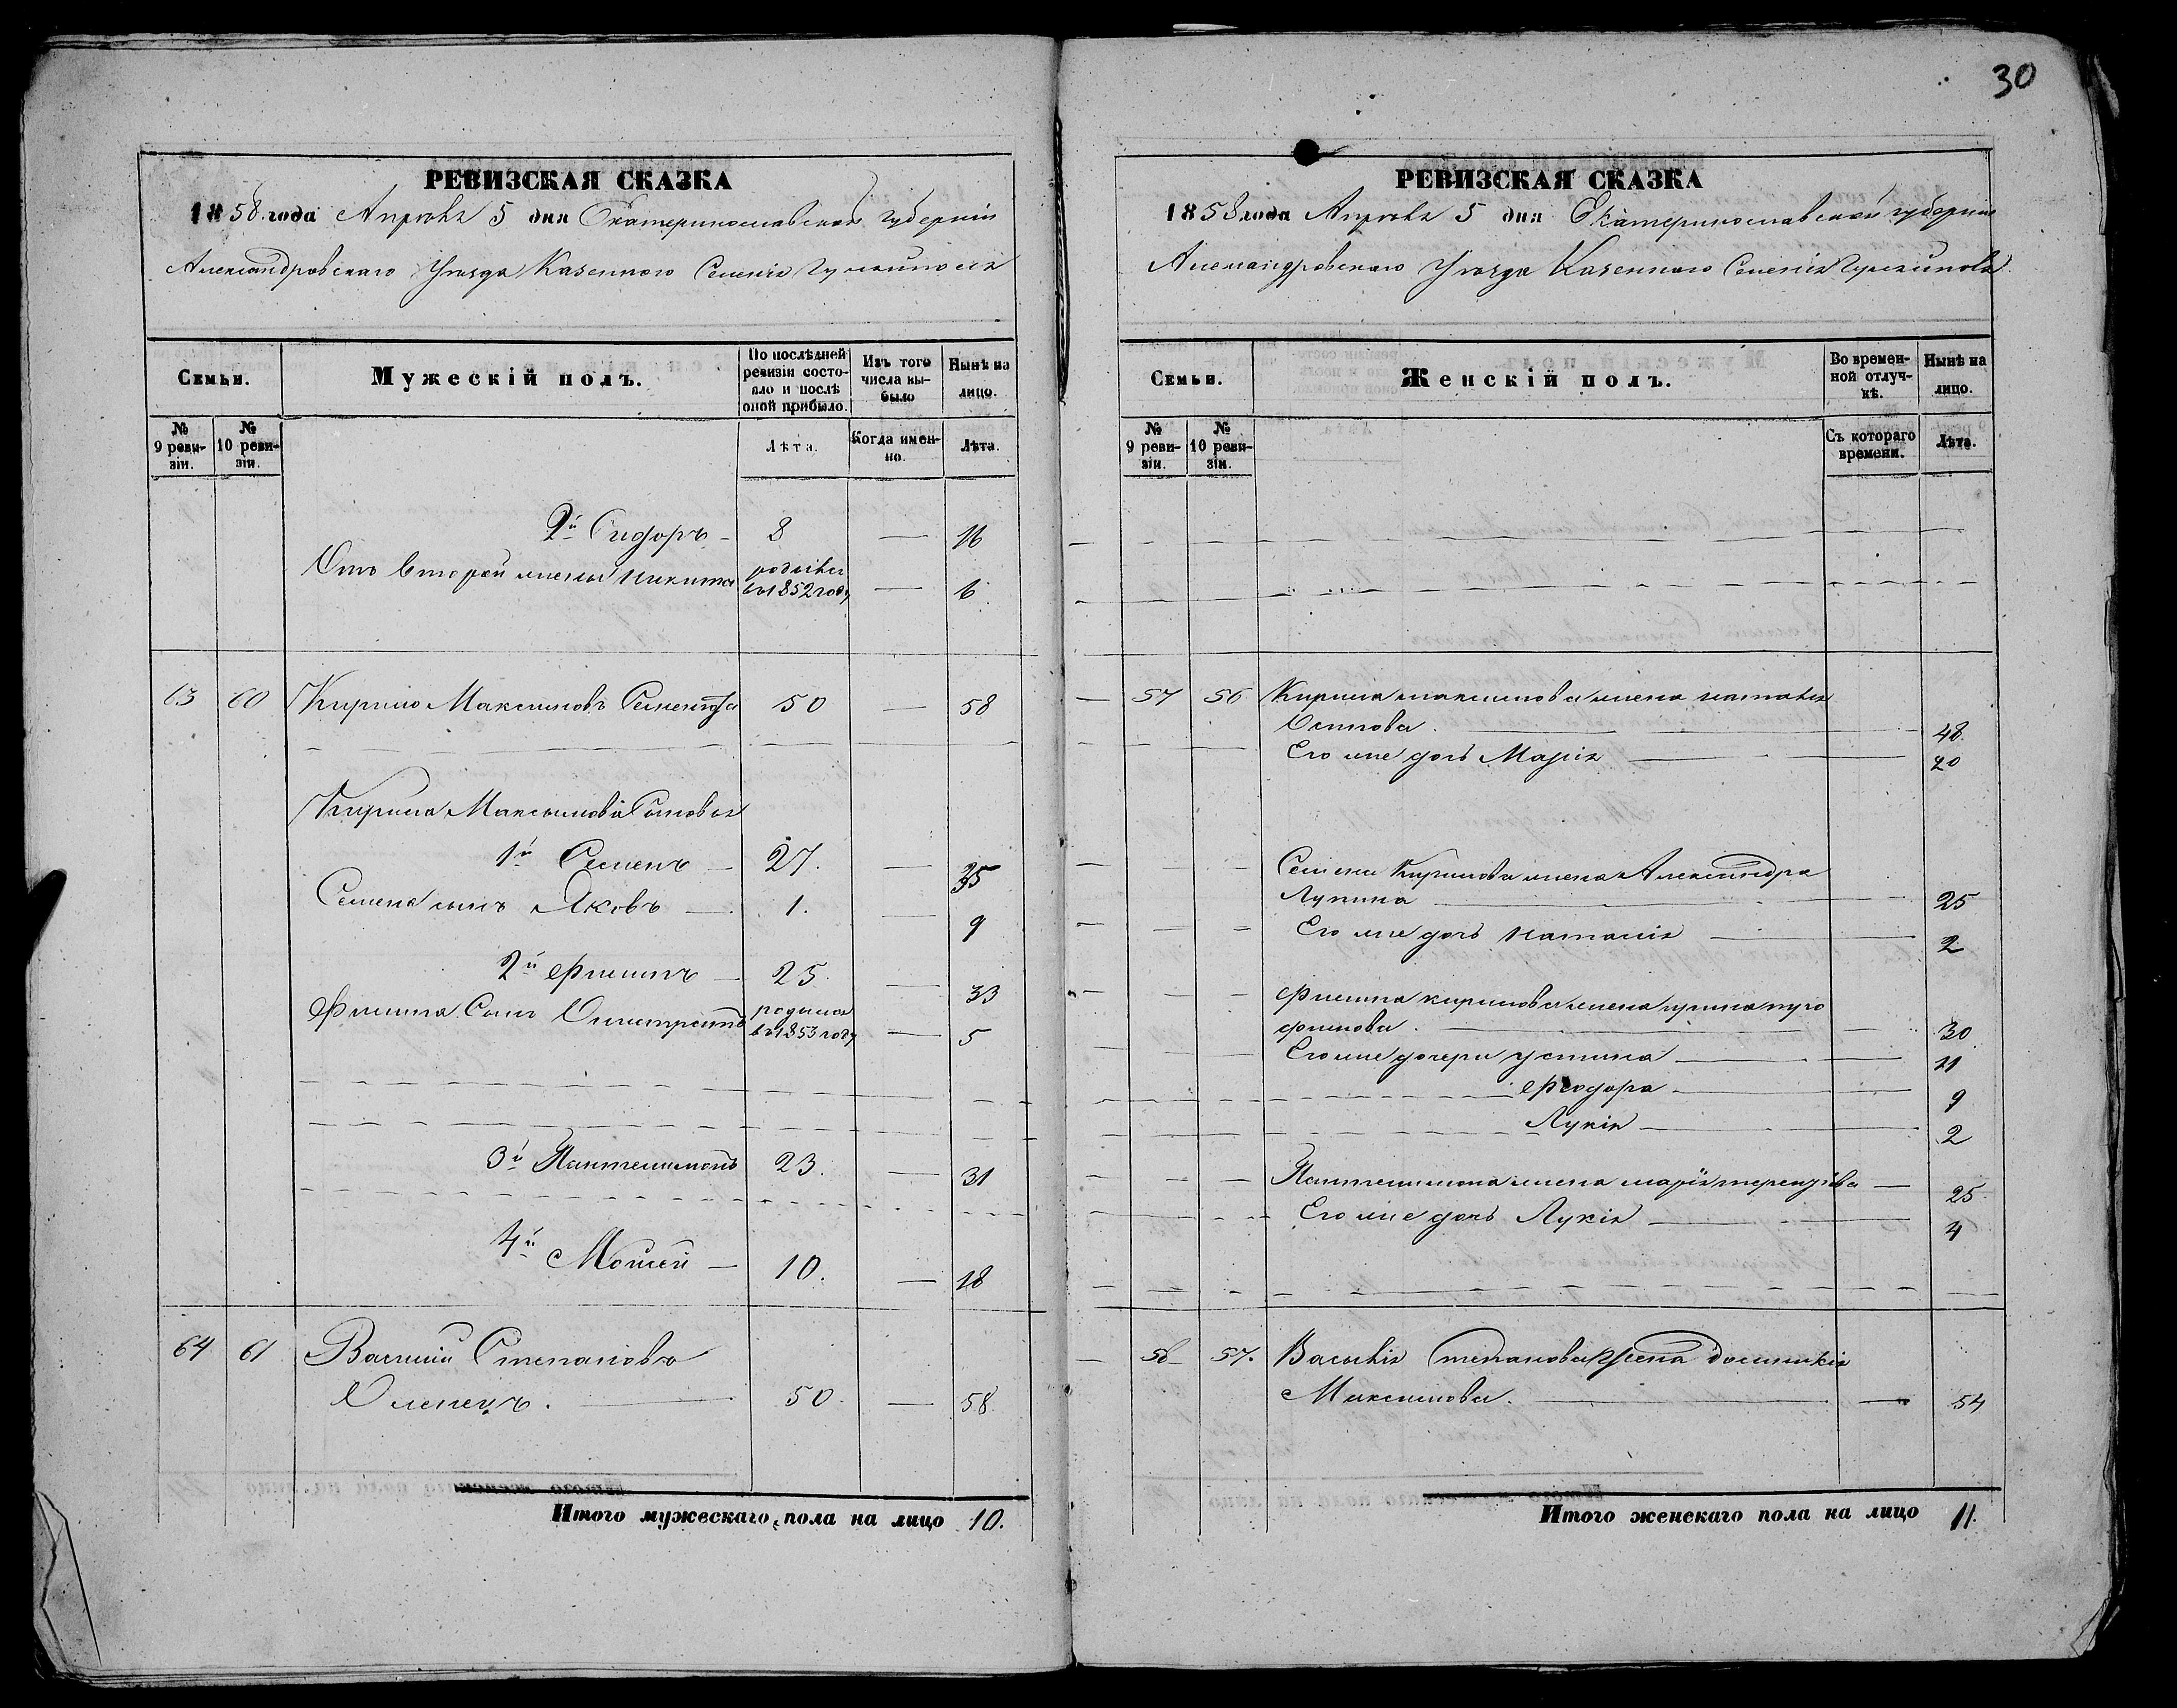 30
РЕВИЗСКАЯ СКАЗКА
1858 года Апрѣля 5 дня Екатеринославской губерніи
Александровскаго Уѣзда Казеннаго Селенія Гуляйполя
Семьи.
Мужескій полъ.
По послѣдней ревизіи состояло и послѣ оной прибыло.
Изъ того числа выбыло
Нынѣ на лицо.
№ 9 ревизіи.
№ 10 ревизіи.
Лѣта.
Когда именно.
Лѣта.
2й Сидоръ - 8 — 16
Отъ второй жены Никита родился въ 1852 году — 6
63 60 Кирило Максимовъ 50 — 58
Кирила Максимова Сыновья
1й Семенъ — 27. — 35
Семена сынъ Яковъ — 1. — 9
2й Филипъ — 25. — 33
Филипа Сынъ родился въ 1853 году — 5
3й Пантелимонъ 23. — 31
4й Мойсей — 10. — 18
64 61 Василій Степановъ
Оленецъ. — 50. — 58
Итого мужескаго пола на лицо 10.
РЕВИЗСКАЯ СКАЗКА
1858 года Апрѣля 5 дня Екатеринославской губерніи
Александровскаго Уѣзда Казеннаго Селенія Гуляйполя
Семьи.
Женскій полъ.
Во временной отлучкѣ.
Нынѣ на лицо.
№ 9 ревизіи.
№ 10 ревизіи.
Съ котораго времени.
Лѣта.
57 56 Кирила Максимова жена Наталья
Осипова. — 48.
Его же дочь Марія — 20
Семена Кирилова жена Александра
Лукина — 25
Его же дочь Наталія — 2
Филипа Кирилова жена
— 30
Его же дочери Устина — 11
Феодора — 9
Лукія — 2
Пантелимона жена Марія Терентьева — 25
Его же дочь Лукія — 4
58 57. Василія Степанова Жена Домникія
Максимова. — 54
Итого женскаго пола на лицо 11.